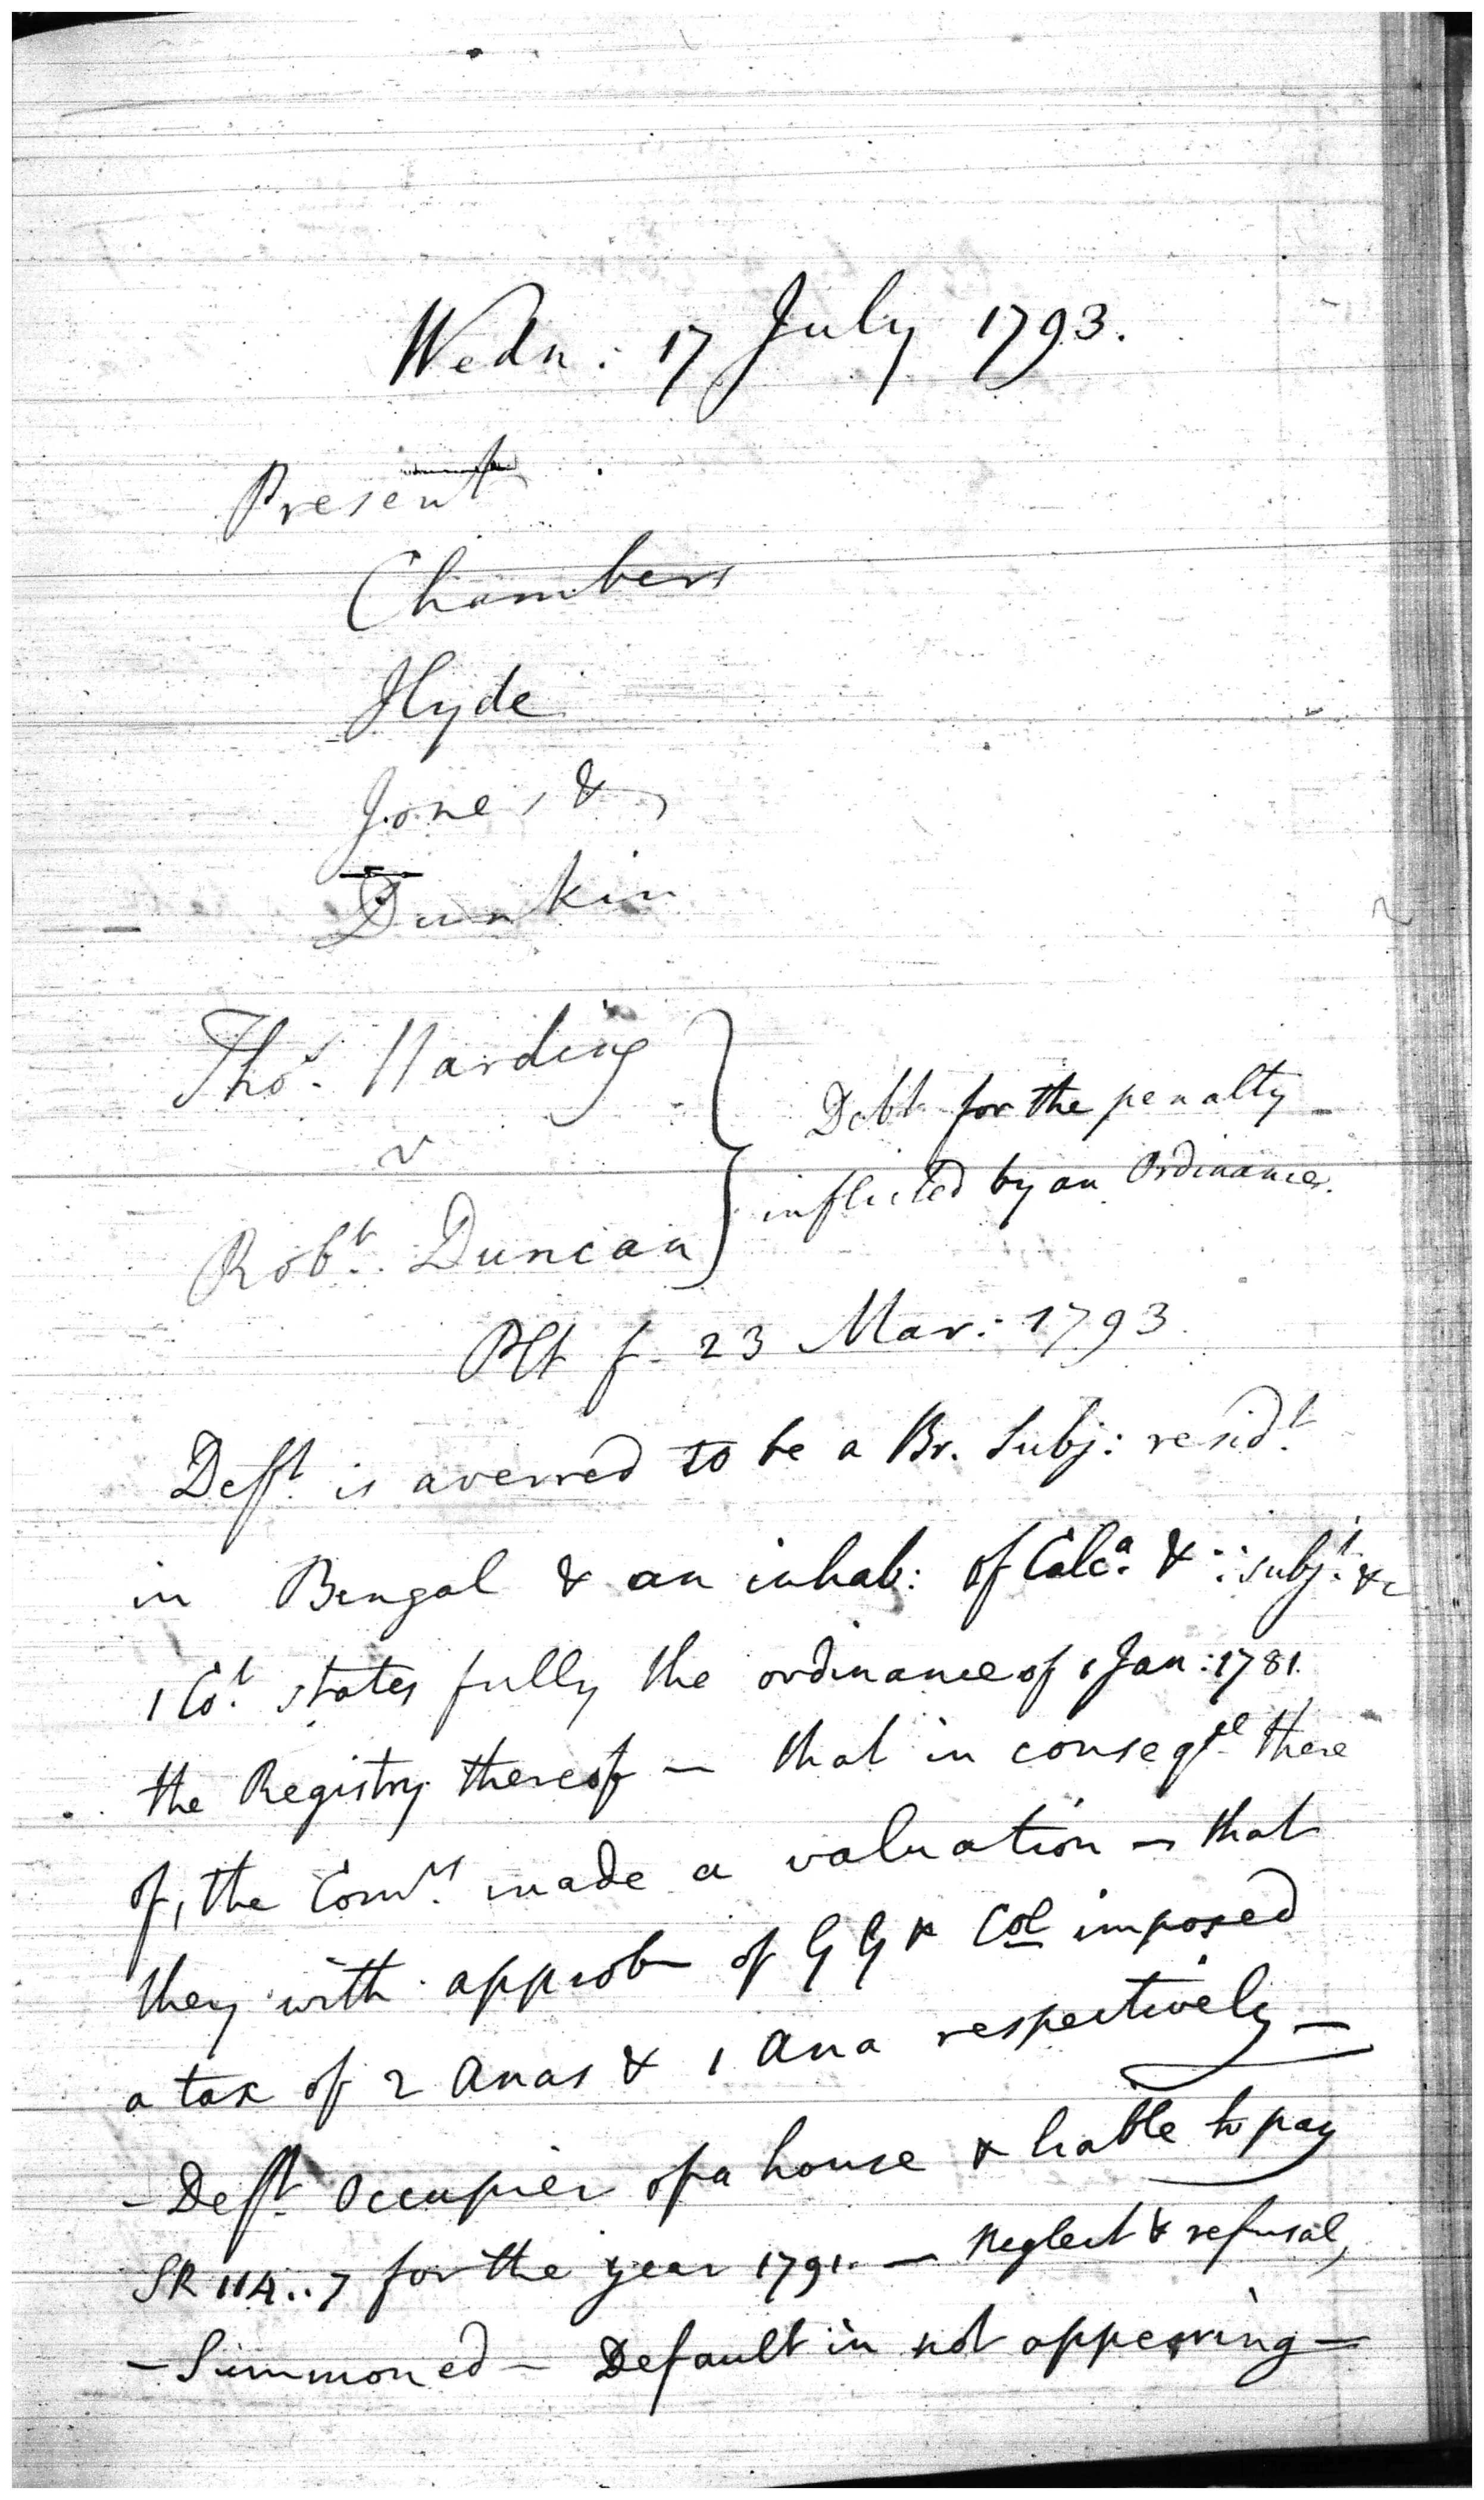 Wedn: 17 July 1793.
Present
Chambers
Hyde
Jones &
Dunkin
Thos. Harding
v
Robt. Duncan
Debt for the penalty
inflicted by an Ordinance.
Plt f. 23 Mar: 1793
Deft. is averred to be a Br. Subj: residt.
in Bengal & an inhab: of Calca. & ∵ subjt. &c
1 Cot. states fully the ordinance of 1 Jan: 1781.
the Registry thereof — that in conseqce there
of, the Comrs. made a valuation — that
they with approbn of G G & Col imposed
a tax of 2 Anas & 1 Ana respectively —
— Deft. Occupier of a house & liable to pay
SR 114..7 for the year 1791. — Neglect & refusal,
— Summoned — Default in not appearing —